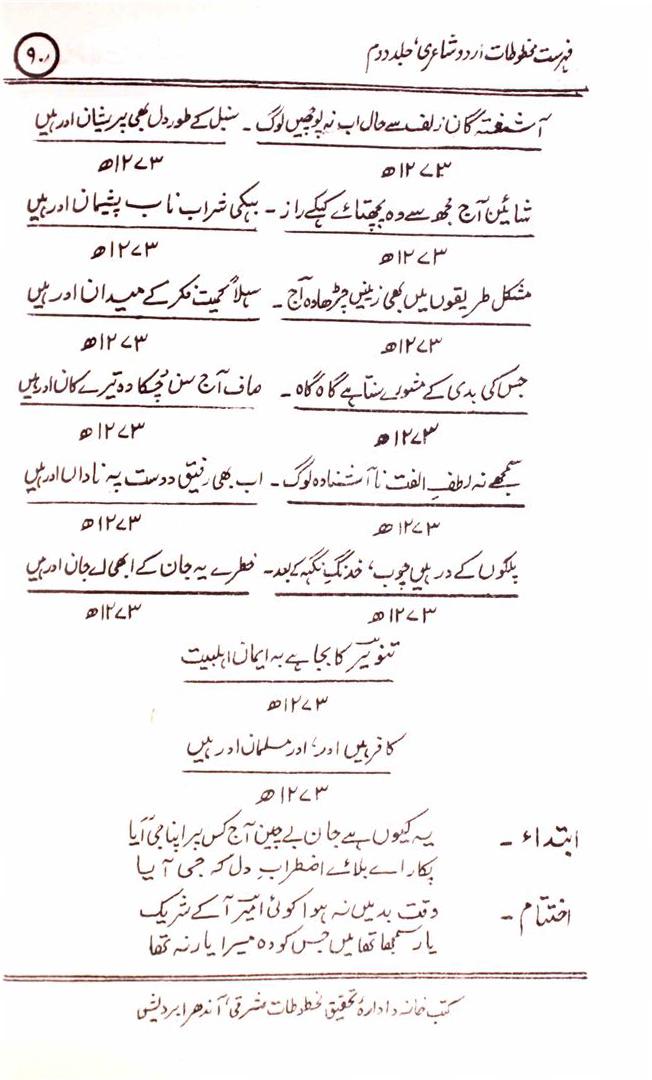 فہرست مخطوطات اردو شاعری، جلد دوم
۹۰
آشفتہ گان زلف سے حال اب نہ پوچھیں لوگ ۔ سنبل کے طور دل بھی پریشان اور ہیں
۱۲۷۳ھ ۱۲۷۳ھ
شائین آج مجھ سے وہ پچھتائے کہکے راز ۔ بہکی شراب ناب پشیمان اور ہیں
۱۲۷۳ھ ۱۲۷۳ھ
مشکل طریقوں میں بھی زمینیں چڑھا وہ آج ۔ کمیت فکر کے میدان اور ہیں
۱۲۷۳ھ ۱۲۷۳ھ
جس کی بدی کے مشورے سنتا ہے گاہ گاہ ۔ صاف آج سن چکا وہ تیرے کان اور ہیں
۱۲۷۳ھ ۱۲۷۳ھ
سمجھے نہ لطف الفت ناآشنا وہ لوگ ۔ اب بھی رفیق دوست یہ ناداں اور ہیں
۱۲۷۳ھ ۱۲۷۳ھ
پلکوں کے در ہیں چوب، خدنگ نگہہ کے بعد ۔ خطرے یہ جان کے ابھی اے جان اور ہیں
۱۲۷۳ھ ۱۲۷۳ھ
تنویر کا بجا ہے بہ ایمان اہلبیت
۱۲۷۳ھ
کافر ہیں اور، اور مسلمان اور ہیں
۱۲۷۳ھ
ابتداء ۔ یہ کیوں ہے جان بے چین آج کس پر اپنا جی آیا
پکارا اے بلائے اضطراب دل کہ جی آیا
اختتام ۔ وقت بد میں نہ ہوا کوئی امیر آکے شریک
یار سمجھا تھا میں جس کو وہ میرا یار نہ تھا
کتب خانہ و ادارۂ تحقیق مخطوطات مشرقی، آندھرا پردیش